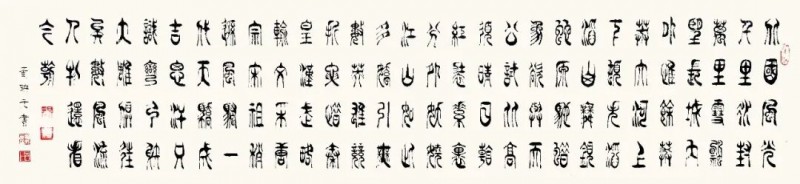 北國風光
千里冰封
萬里雪飄
望長城内
外惟餘莽
莽大河上
下頓失滔
滔山舞銀
蛇原馳蠟
象欲與天
公試比高
須晴日看
紅裝素裹
分外妖嬈
江山如此
多嬌引無
數英雄競
折腰惜秦
皇漢武略
輸文采唐
宗宋祖稍
遜風騷一
代天驕成
吉思汗只
識彎弓射
大雕俱往
矣數風流
人物還看
今朝